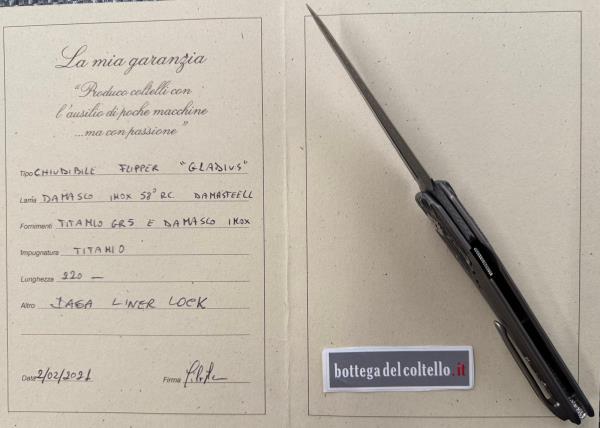 La mia garanzia
"Produco coltelli con
l'ausilio di poche macchine
...ma con passione"
Tipo CHIUDIBILE FLIPPER "GLADIUS"
Lama DAMASCO INOX 58° RC DAMASTEEL
Fornimenti TITANIO GR5 E DAMASCO INOX
Impugnatura TITANIO
Lunghezza 220 —
Altro DAGA LINER LOCK
Data 2/02/2021 Firma
bottegadelcoltello.it